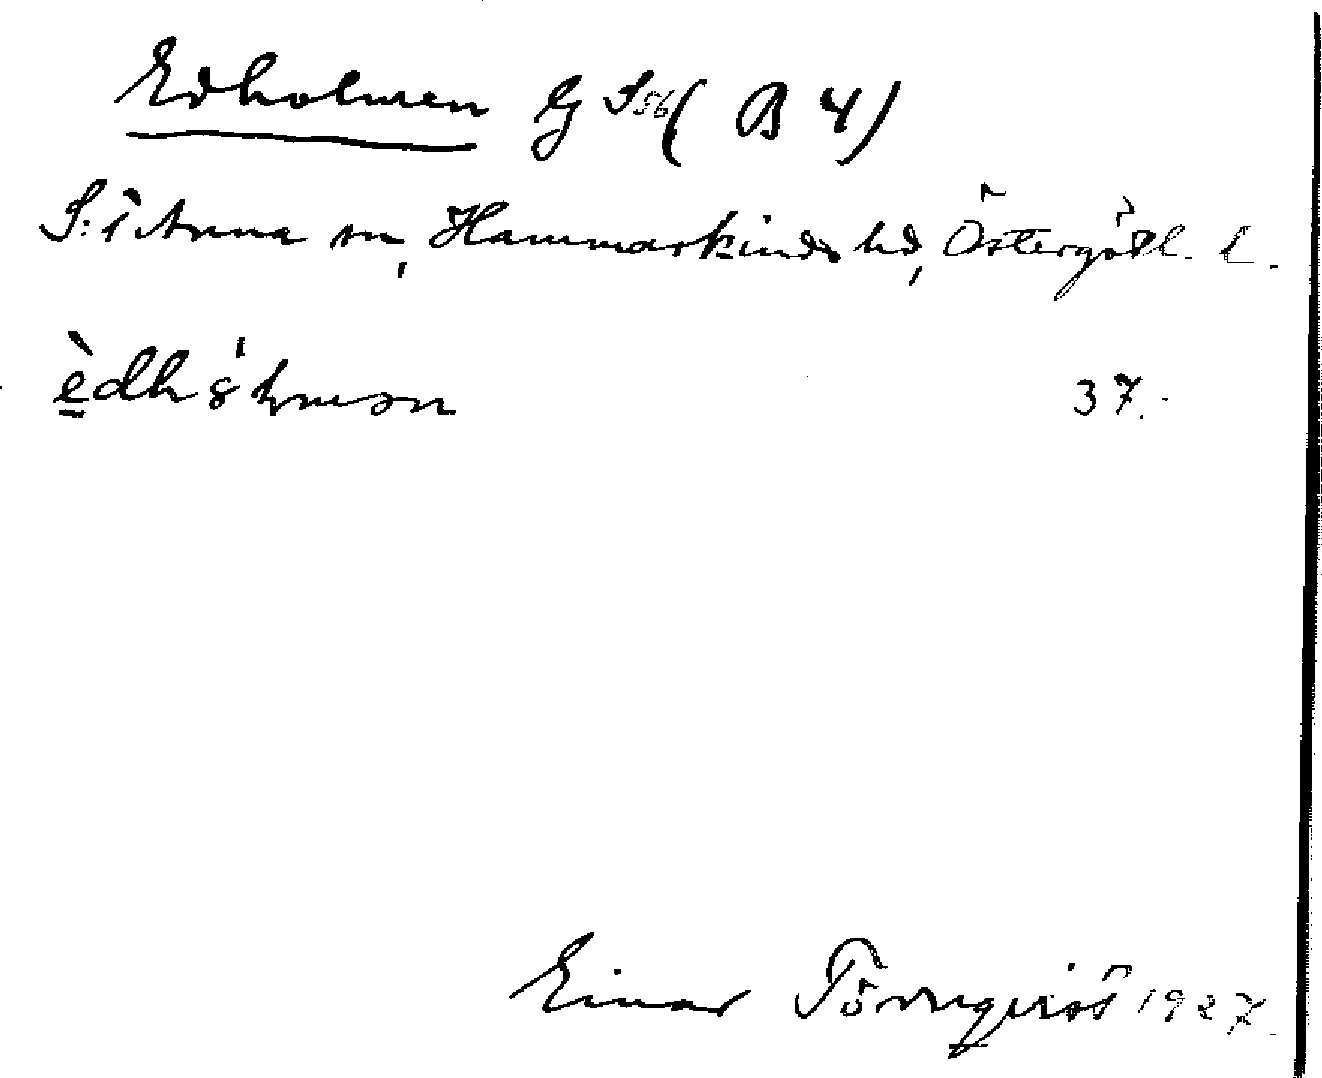 Edholmen G S56 ( B 4 )
S:t Anna sn, Hammarkinds hd, Östergötl. L.
èdhȣ́lmən 37.
Einar Törnqvist 1927.